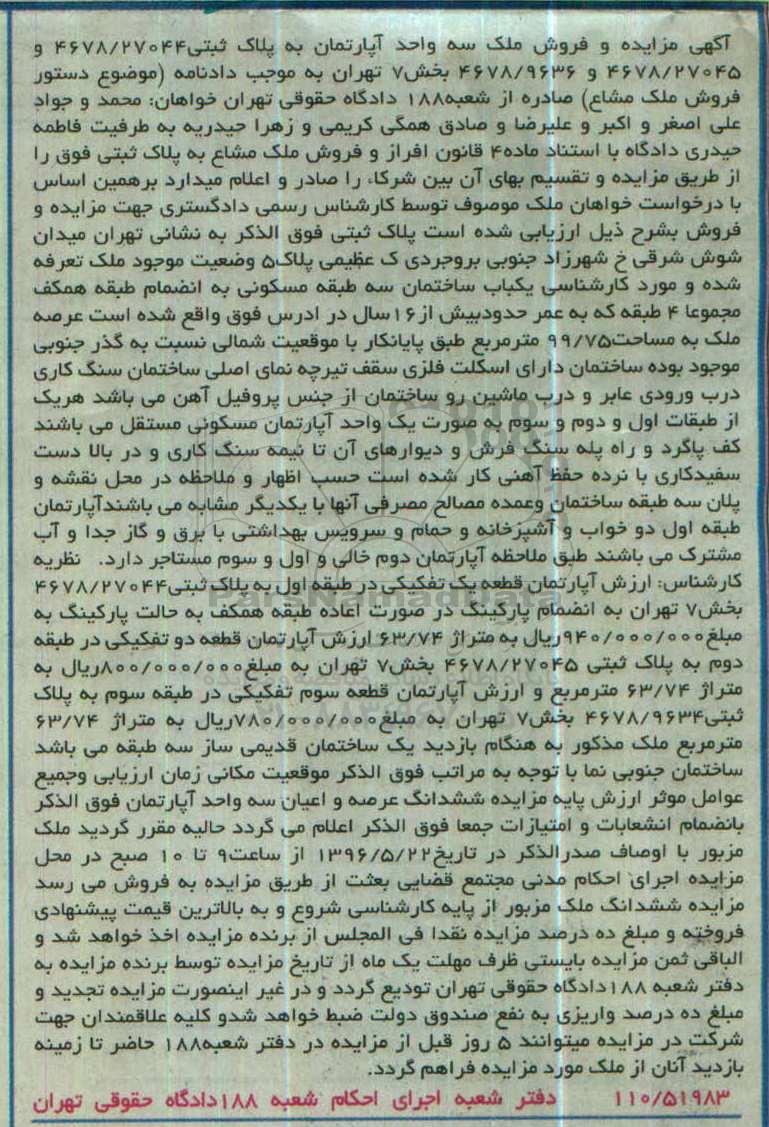 آگهی مزایده و فروش ملک سه واحد آپارتمان به پلاک ثبتی۴۶۷۸/۲۷۰۴۴ و
۴۶۷۸/۲۷۰۴۵ و ۴۶۷۸/۹۶۳۶ بخش۷ تهران به موجب دادنامه (موضوع دستور
فروش ملک مشاع) صادره از شعبه۱۸۸ دادگاه حقوقی تهران خواهان: محمد و جواد
علی اصغر و اکبر و علیرضا و صادق همگی کریمی و زهرا حیدریه به طرفیت فاطمه
حیدری دادگاه با استناد ماده۴ قانون افراز و فروش ملک مشاع به پلاک ثبتی فوق را
از طریق مزایده و تقسیم بهای آن بین شرکاء را صادر و اعلام میدارد برهمین اساس
با درخواست خواهان ملک موصوف توسط کارشناس رسمی دادگستری جهت مزایده و
فروش بشرح ذیل ارزیابی شده است پلاک ثبتی فوق الذکر به نشانی تهران میدان
شوش شرقی خ شهرزاد جنوبی بروجردی ک عظیمی پلاک۵ وضعیت موجود ملک تعرفه
شده و مورد کارشناسی یکباب ساختمان سه طبقه مسکونی به انضمام طبقه همکف
مجموعا ۴ طبقه که به عمر حدودبیش از۱۶سال در ادرس فوق واقع شده است عرصه
ملک به مساحت۹۹/۷۵ مترمربع طبق پایانکار با موقعیت شمالی نسبت به گذر جنوبی
موجود بوده ساختمان دارای اسکلت فلزی سقف تیرچه نمای اصلی ساختمان سنگ کاری
درب ورودی عابر و درب ماشین رو ساختمان از جنس پروفیل آهن می باشد هریک
از طبقات اول و دوم و سوم به صورت یک واحد آپارتمان مسکونی مستقل می باشند
کف پاگرد و راه پله سنگ فرش و دیوارهای آن تا نیمه سنگ کاری و در بالا دست
سفیدکاری با نرده حفظ آهنی کار شده است حسب اظهار و ملاحظه در محل نقشه و
پلان سه طبقه ساختمان وعمده مصالح مصرفی آنها با یکدیگر مشابه می باشندآپارتمان
طبقه اول دو خواب و آشپزخانه و حمام و سرویس بهداشتی با برق و گاز جدا و آب
مشترک می باشند طبق ملاحظه آپارتمان دوم خالی و اول و سوم مستاجر دارد. نظریه
کارشناس: ارزش آپارتمان قطعه یک تفکیکی در طبقه اول به پلاک ثبتی۴۶۷۸/۲۷۰۴۴
بخش۷ تهران به انضمام پارکینگ در صورت اعاده طبقه همکف به حالت پارکینگ به
مبلغ۹۴۰/۰۰۰/۰۰۰ریال به متراژ ۶۳/۷۴ ارزش آپارتمان قطعه دو تفکیکی در طبقه
دوم به پلاک ثبتی ۴۶۷۸/۲۷۰۴۵ بخش۷ تهران به مبلغ۸۰۰/۰۰۰/۰۰۰ریال به
متراژ ۶۳/۷۴ مترمربع و ارزش آپارتمان قطعه سوم تفکیکی در طبقه سوم به پلاک
ثبتی۴۶۷۸/۹۶۳۴ بخش۷ تهران به مبلغ۷۸۰/۰۰۰/۰۰۰ریال به متراژ ۶۳/۷۴
مترمربع ملک مذکور به هنگام بازدید یک ساختمان قدیمی ساز سه طبقه می باشد
ساختمان جنوبی نما با توجه به مراتب فوق الذکر موقعیت مکانی زمان ارزیابی وجمیع
عوامل موثر ارزش پایه مزایده ششدانگ عرصه و اعیان سه واحد آپارتمان فوق الذکر
بانضمام انشعابات و امتیازات جمعا فوق الذکر اعلام می گردد حالیه مقرر گردید ملک
مزبور با اوصاف صدرالذکر در تاریخ۱۳۹۶/۵/۲۲ از ساعت۹ تا ۱۰ صبح در محل
مزایده اجرای احکام مدنی مجتمع قضایی بعثت از طریق مزایده به فروش می رسد
مزایده ششدانگ ملک مزبور از پایه کارشناسی شروع و به بالاترین قیمت پیشنهادی
فروخته و مبلغ ده درصد مزایده نقدا فی المجلس از برنده مزایده اخذ خواهد شد و
الباقی ثمن مزایده بایستی ظرف مهلت یک ماه از تاریخ مزایده توسط برنده مزایده به
دفتر شعبه ۱۸۸دادگاه حقوقی تهران تودیع گردد و در غیر اینصورت مزایده تجدید و
مبلغ ده درصد واریزی به نفع صندوق دولت ضبط خواهد شدو کلیه علاقمندان جهت
شرکت در مزایده میتوانند ۵ روز قبل از مزایده در دفتر شعبه۱۸۸ حاضر تا زمینه
بازدید آنان از ملک مورد مزایده فراهم گردد.
۱۱۰/۵۱۹۸۳ دفتر شعبه اجرای احکام شعبه ۱۸۸دادگاه حقوقی تهران